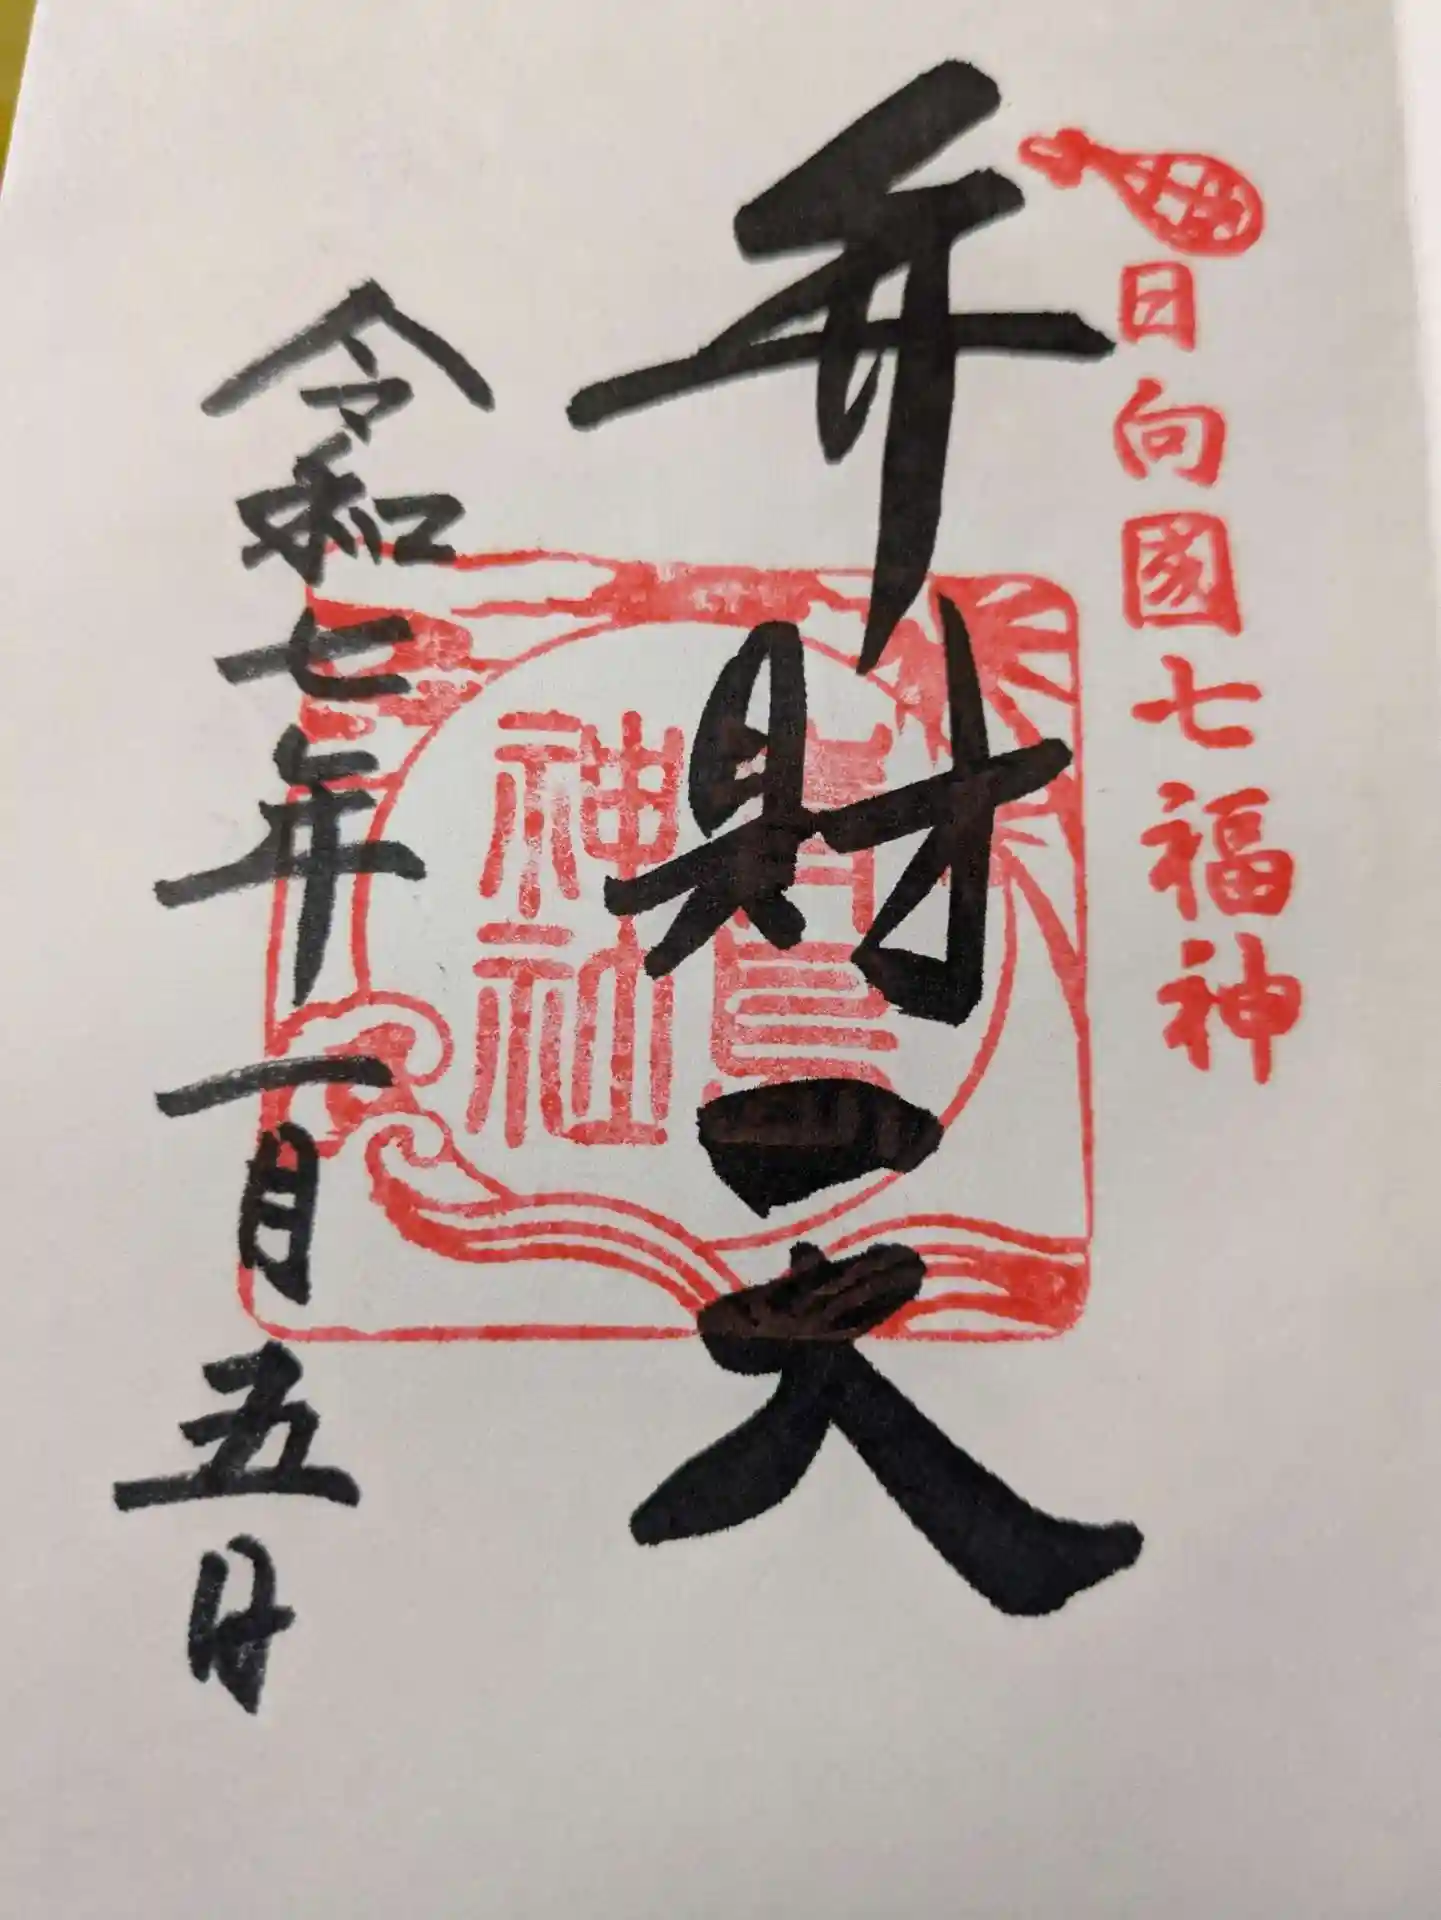 日向國七福神
弁財天
青島
神社
令和七年一月五日